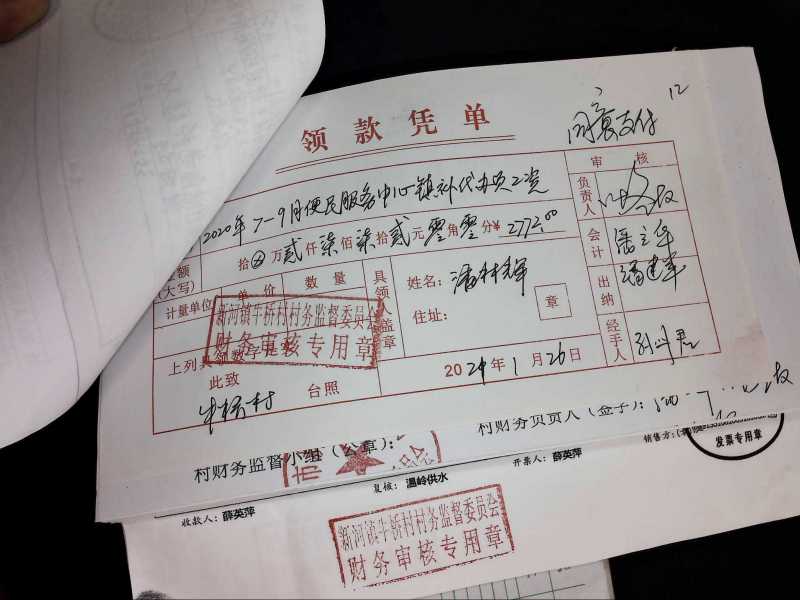 12
领款凭单
同意支付
审核
2020年7-9月便民服务中心镇补代办员工资
负责人
金额
(大写)
拾⊗万贰仟柒佰柒拾贰元零角零分¥2772.00
会计
计量单位 单价 数量
具领人盖章
姓名:
潘林辉
住址:
章
出纳
新河镇牛桥村村务监督委员会
财务审核专用章
经手人
上列具领数字是实
此致
台照
2024年1月26日
牛桥村
村财务监督小组(公章):
村财务负责人(签字):
销售方:(
发票专用章
收款人:薛英萍
复核:温岭供水
开票人:薛英萍
新河镇牛桥村村务监督委员会
财务审核专用章